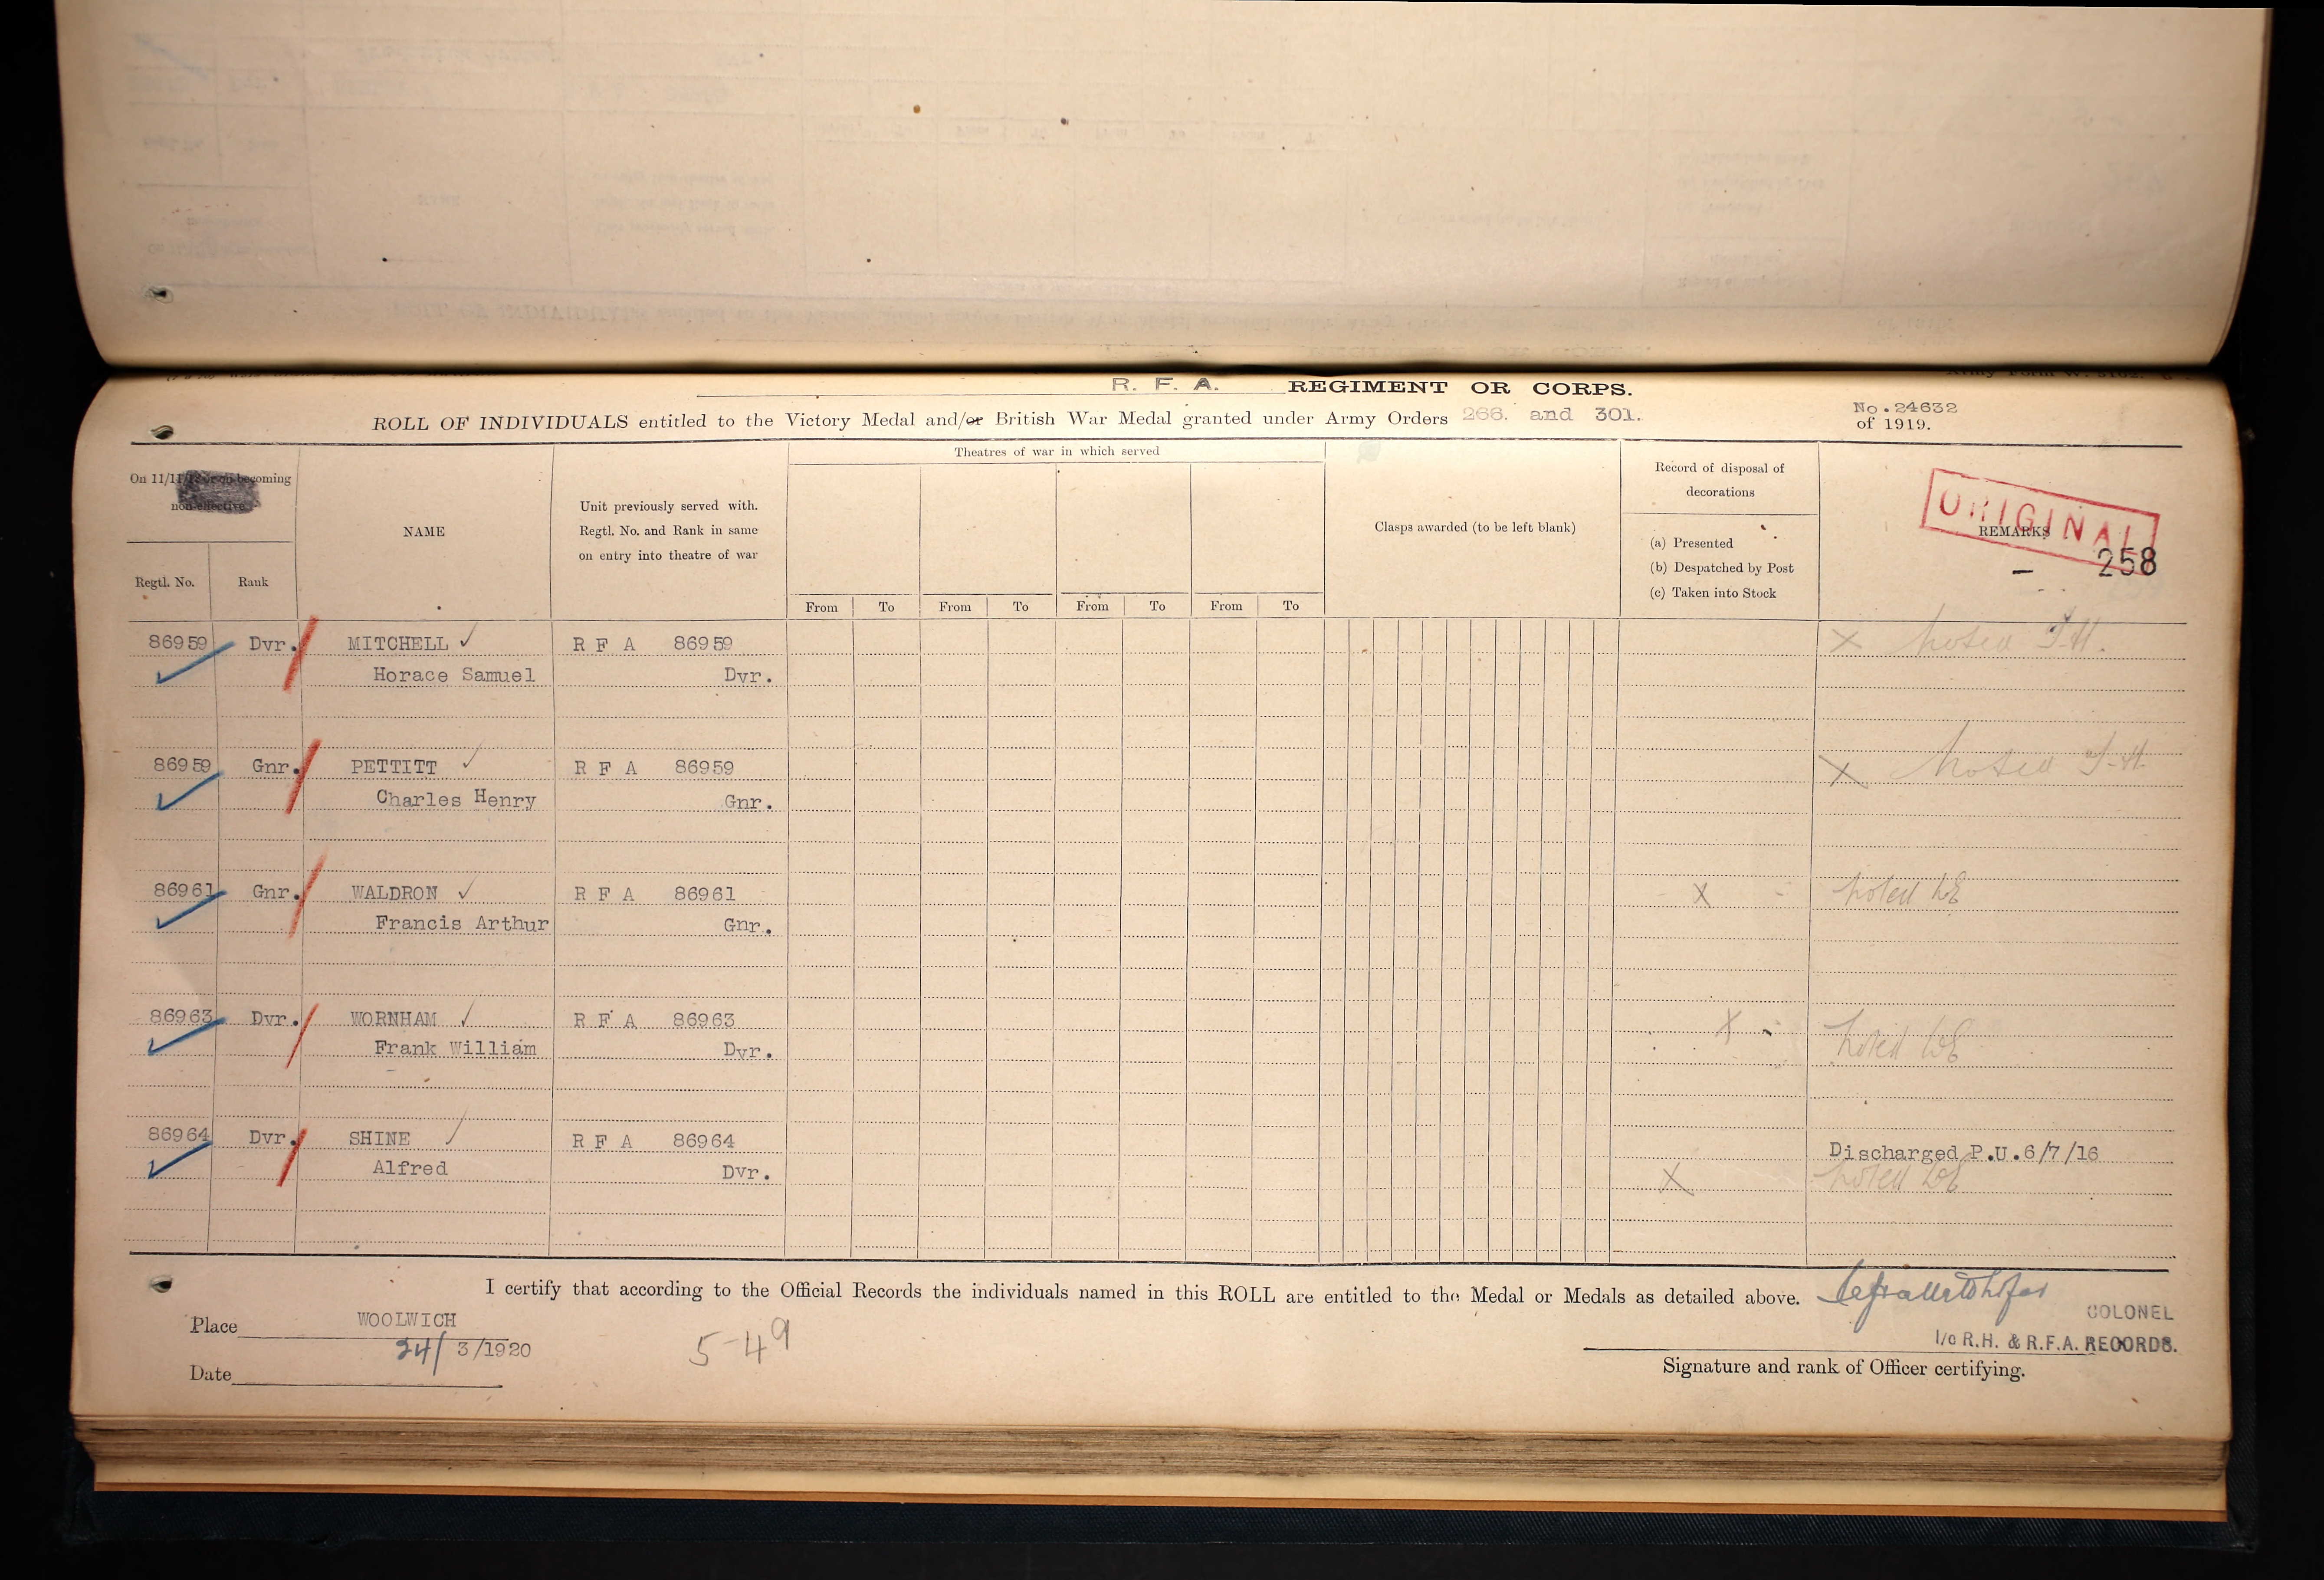 R. F. A. REGIMENT OR CORPS.
ROLL OF INDIVIDUALS entitled to the Victory Medal and/or British War Medal granted under Army Orders 266. and 301.
No. 24632
of 1919.
On 11/11/18 or on becoming
non-effective.
Regtl. No.
Rank
NAME
Unit previously served with.
Regtl. No. and Rank in same
on entry into theatre of war
Theatres of war in which served
From To From To From To From To
Clasps awarded (to be left blank)
Record of disposal of
decorations
(a) Presented
(b) Despatched by Post
(c) Taken into Stock
REMARKS
ORIGINAL
258
86959 Dvr. MITCHELL ✓ R F A 86959 X Noted
Horace Samuel Dvr.
86959 Gnr. PETTITT ✓ R F A 86959 X Noted
Charles Henry Gnr.
86961 Gnr. WALDRON ✓ R F A 86961 X Noted
Francis Arthur Gnr.
86963 Dvr. WORNHAM ✓ R F A 86963 X Noted
Frank William Dvr.
86964 Dvr. SHINE ✓ R F A 86964 Discharged P.U. 6/7/16
Alfred Dvr. X Noted
I certify that according to the Official Records the individuals named in this ROLL are entitled to the Medal or Medals as detailed above.
COLONEL
I/c R.H. & R.F.A. RECORDS.
Signature and rank of Officer certifying.
Place WOOLWICH
24/3/1920
Date
5-49